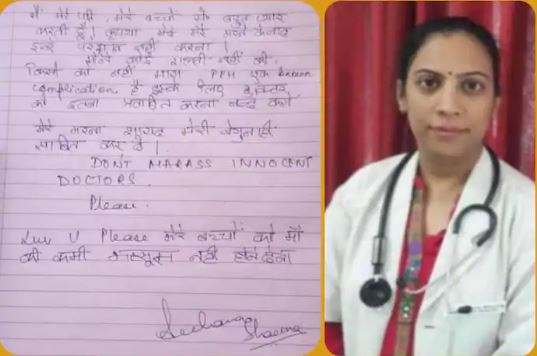 मैं मेरे पति, मेरे बच्चों से बहुत प्यार
करती हूँ। कृपया मेरे मरने के बाद
इन्हें परेशान नहीं करना।
मैंने कोई गलती नहीं की,
किसी को नहीं मारा PPH एक known
complication है इसके लिए डॉक्टर
को इतना प्रताड़ित करना बन्द करो
मेरा मरना शायद मेरी बेगुनाही
साबित कर दे।
DON'T HARASS INNOCENT
DOCTORS.
Please.
Luv U Please मेरे बच्चों को माँ
की कमी महसूस नहीं होने देना
Archana
Sharma